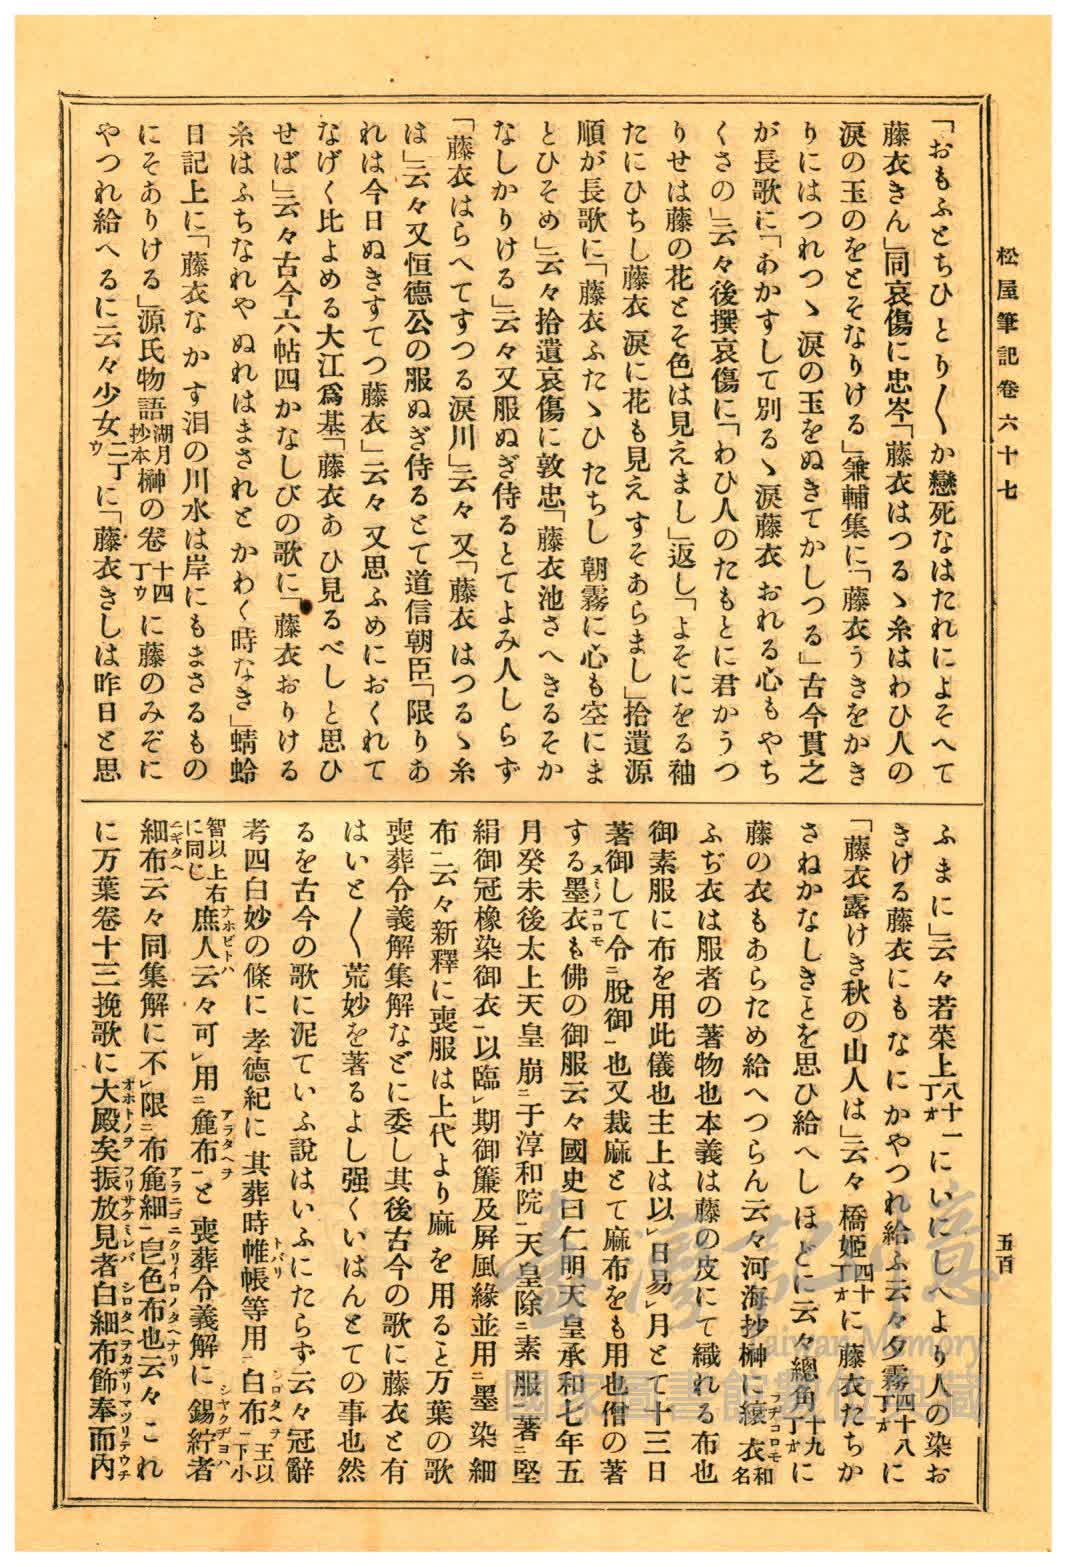 松屋筆記卷六十七
五百
「おもふとちひとり〳〵か戀死なはたれによそへて
藤衣きん」同哀傷に忠岑「藤衣はつるゝ糸はわひ人の
淚の玉のをとそなりける」兼輔集に「藤衣うきをかき
りにはつれつゝ淚の玉をぬきてかしつる」古今貫之
が長歌に「あかすして別るゝ淚藤衣おれる心もやち
くさの」云々後撰哀傷に「わひ人のたもとに君かうつ
りせは藤の花とそ色は見えまし」返し「よそにをる袖
たにひちし藤衣淚に花も見えすそあらまし」拾遺源
順が長歌に「藤衣ふたゝひたちし朝霧に心も空にま
とひそめ」云々拾遺哀傷に敦忠「藤衣池さへきるそか
なしかりける」云々又服ぬぎ侍るとてよみ人しらず
「藤衣はらへてすつる淚川」云々又「藤衣はつるゝ糸
は」云々又恒德公の服ぬぎ侍るとて道信朝臣「限りあ
れは今日ぬきすてつ藤衣」云々又思ふめにおくれて
なげく比よめる大江爲基「藤衣あひ見るべしと思ひ
せば」云々古今六帖四かなしびの歌に「藤衣おりける
糸はふちなれやぬれはまされとかわく時なき」蜻蛉
日記上に「藤衣なかす泪の川水は岸にもまさるもの
にそありける」源氏物語湖月抄本榊の卷十四丁ウに藤のみぞに
やつれ給へるに云々少女二丁ウに「藤衣きしは昨日と思
ふまに」云々若菜上八十一丁オにいにしへより人の染お
きける藤衣にもなにかやつれ給ふ云々夕霧四十八丁オに
「藤衣露けき秋の山人は」云々橋姬四十丁オに藤衣たちか
さねかなしきことを思ひ給へしほどに云々總角十九丁オに
藤の衣もあらため給へつらん云々河海抄榊に縗衣フヂコロモ和名
ふぢ衣は服者の著物也本義は藤の皮にて織れる布也
御素服に布を用此儀也主上は以レ日易レ月とて十三日
著御して令ニ脫御一也又裁麻とて麻布をも用也僧の著
する墨衣スミノコロモも佛の御服云々國史曰仁明天皇承和七年五
月癸未後太上天皇崩ニ于淳和院一天皇除ニ素服一著ニ堅
絹御冠橡染御衣一以臨レ期御簾及屛風緣並用ニ墨染細
布一云々新釋に喪服は上代より麻を用ること万葉の歌
喪葬令義解集解などに委し其後古今の歌に藤衣と有
はいと〳〵荒妙を著るよし强くいはんとての事也然
るを古今の歌に泥ていふ說はいふにたらず云々冠辭
考四白妙の條に孝德紀に其葬時帷帳トバリ等用ニ白布シロタヘヲ一王以下小
智以上右に同じ庶人ナホビトハ云々可レ用ニ麁布アラタヘヲ一と喪葬令義解に錫紵者シヤクヂヨハ
細布ニギタヘ云々同集解に不レ限ニ布麁細アラニゴニ一皀色布也クリイロノタヘナリ云々これ
に万葉卷十三挽歌に大殿矣オホトノヲ振放見者フリサケミレバ白細布飾奉而シロタヘヲカザリマツリテ內ウチ
臺灣記憶
Taiwan Memory
國家圖書館數位典藏